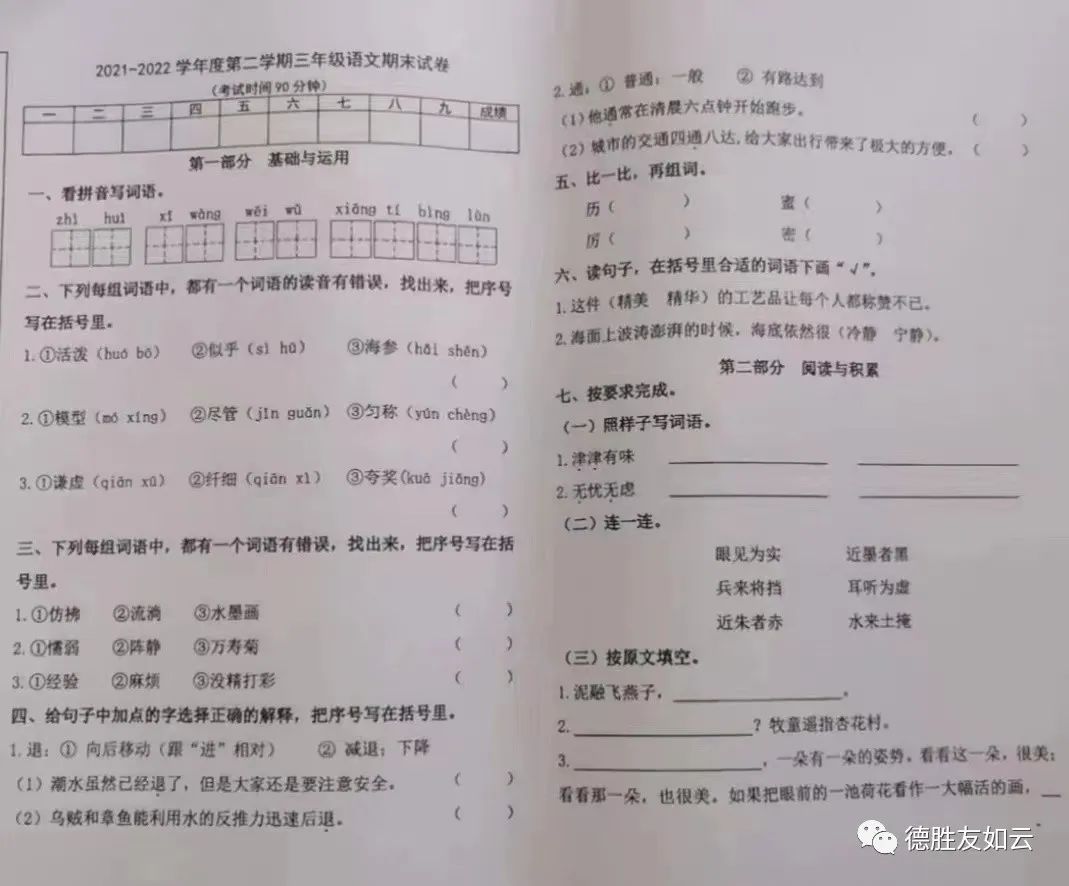 2021-2022 学年度第二学期三年级语文期末试卷
(考试时间 90 分钟)
一 二 三 四 五 六 七 八 九 成绩
第一部分 基础与运用
一、看拼音写词语。
zhì huì xī wàng wěi wǔ xiāng tí bìng lùn
二、下列每组词语中，都有一个词语的读音有错误，找出来，把序号
写在括号里。
1.①活泼（huó bō） ②似乎（sì hū） ③海参（hǎi shēn）
（ ）
2.①模型（mó xíng） ②尽管（jǐn guǎn） ③匀称（yún chèng）
（ ）
3.①谦虚（qiān xū） ②纤细（qiān xì） ③夸奖(kuā jiǎng)
（ ）
三、下列每组词语中，都有一个词语有错误，找出来，把序号写在括
号里。
1.①仿拂 ②流淌 ③水墨画 （ ）
2.①懦弱 ②阵静 ③万寿菊 （ ）
3.①经验 ②麻烦 ③没精打彩 （ ）
四、给句子中加点的字选择正确的解释，把序号写在括号里。
1.退：① 向后移动（跟“进”相对） ② 减退；下降
（1）潮水虽然已经退了，但是大家还是要注意安全。 （ ）
（2）乌贼和章鱼能利用水的反推力迅速后退。 （ ）
2.通：① 普通；一般 ② 有路达到
（1）他通常在清晨六点钟开始跑步。 （ ）
（2）城市的交通四通八达,给大家出行带来了极大的方便。（ ）
五、比一比，再组词。
历（ ） 蜜（ ）
厉（ ） 密（ ）
六、读句子，在括号里合适的词语下画“√”。
1.这件（精美 精华）的工艺品让每个人都称赞不已。
2.海面上波涛澎湃的时候，海底依然很（冷静 宁静）。
第二部分 阅读与积累
七、按要求完成。
（一）照样子写词语。
1.津津有味
2.无忧无虑
（二）连一连。
眼见为实 近墨者黑
兵来将挡 耳听为虚
近朱者赤 水来土掩
（三）按原文填空。
1.泥融飞燕子，____。
2.____？牧童遥指杏花村。
3.____，一朵有一朵的姿势。看看这一朵，很美；
看看那一朵，也很美。如果把眼前的一池荷花看作一大幅活的画，__
德胜友如云